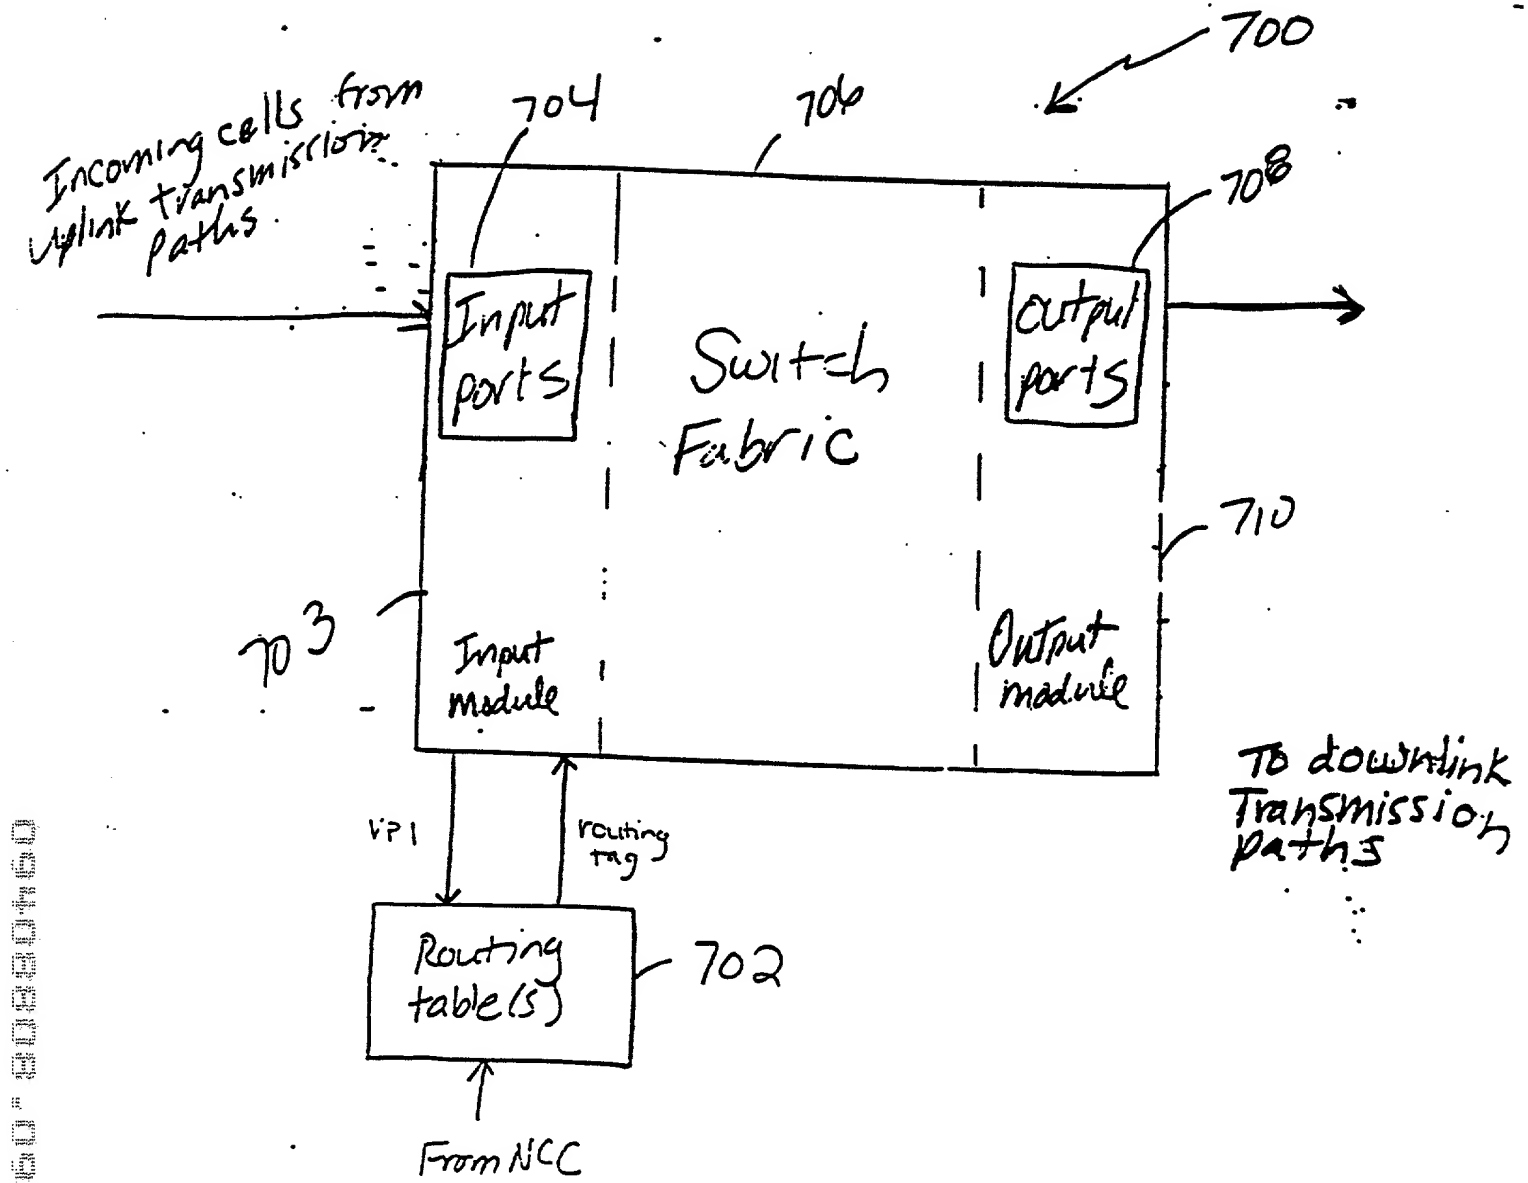 700
704
706
Incoming cells from
uplink transmission
paths
708
Input
ports
Output
ports
Switch
Fabric
710
703
Input
module
Output
module
To downlink
Transmission
paths
VPI
routing
tag
Routing
table(s)
702
From NCC